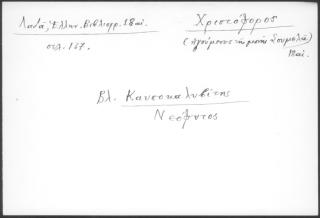 Λαδᾶ, Ἑλλην. Βιβλιογρ. 18 αἰ.
σελ. 157.
Χριστόφορος
(ἡγούμενος τῆς μονῆς Σουμελᾶ)
Βλ. Καυσοκαλυβίτης
Νεόφυτος